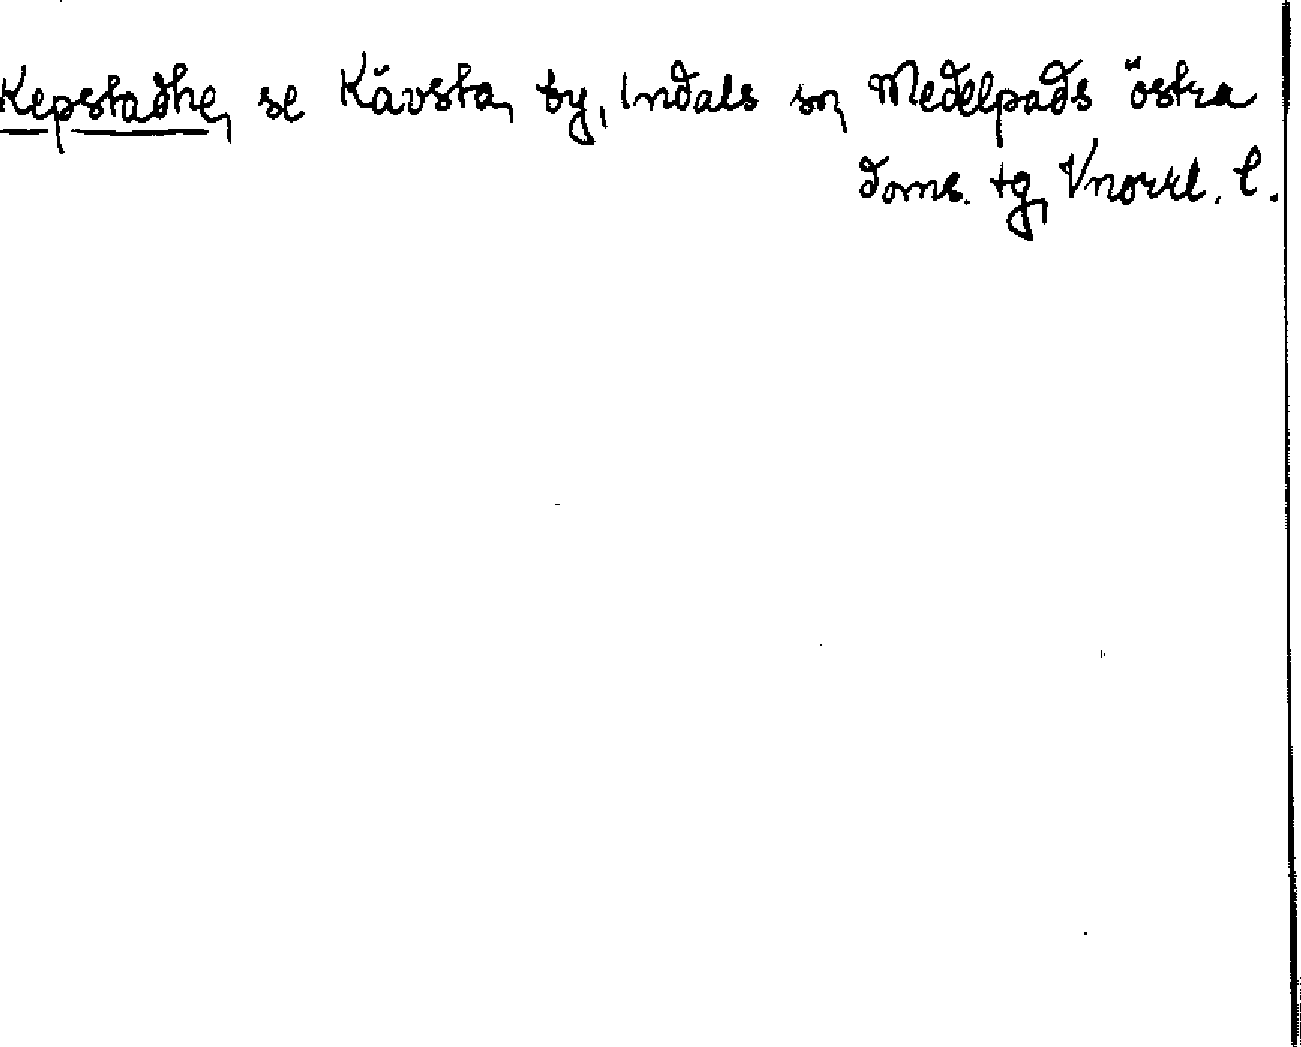 Kepstadhe, se Kävsta, by, Indals sn, Medelpads östra
doms. tg, Vnorrl. l.